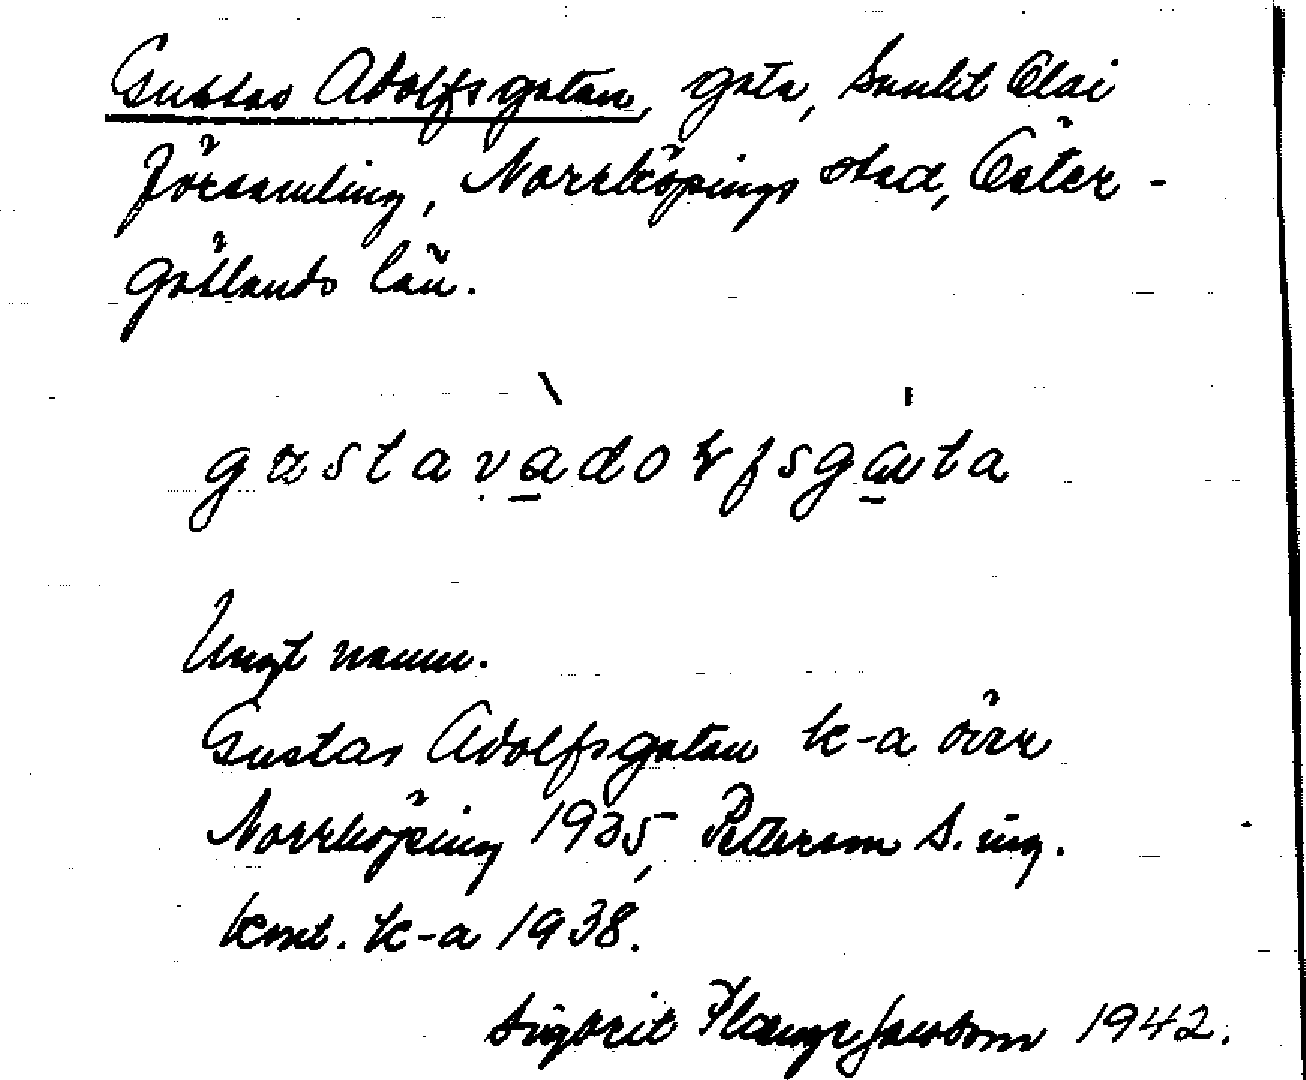 Gustav Adolfsgatan, gata, Sankt Olai
församling, Norrköpings stad, Öster-
götlands län.
Ungt namn.
Gustav Adolfsgatan k-a över
Norrköping 1935, Petterson S. ing.
kont. k-a 1938.
Sigbrit Jacobson 1942.